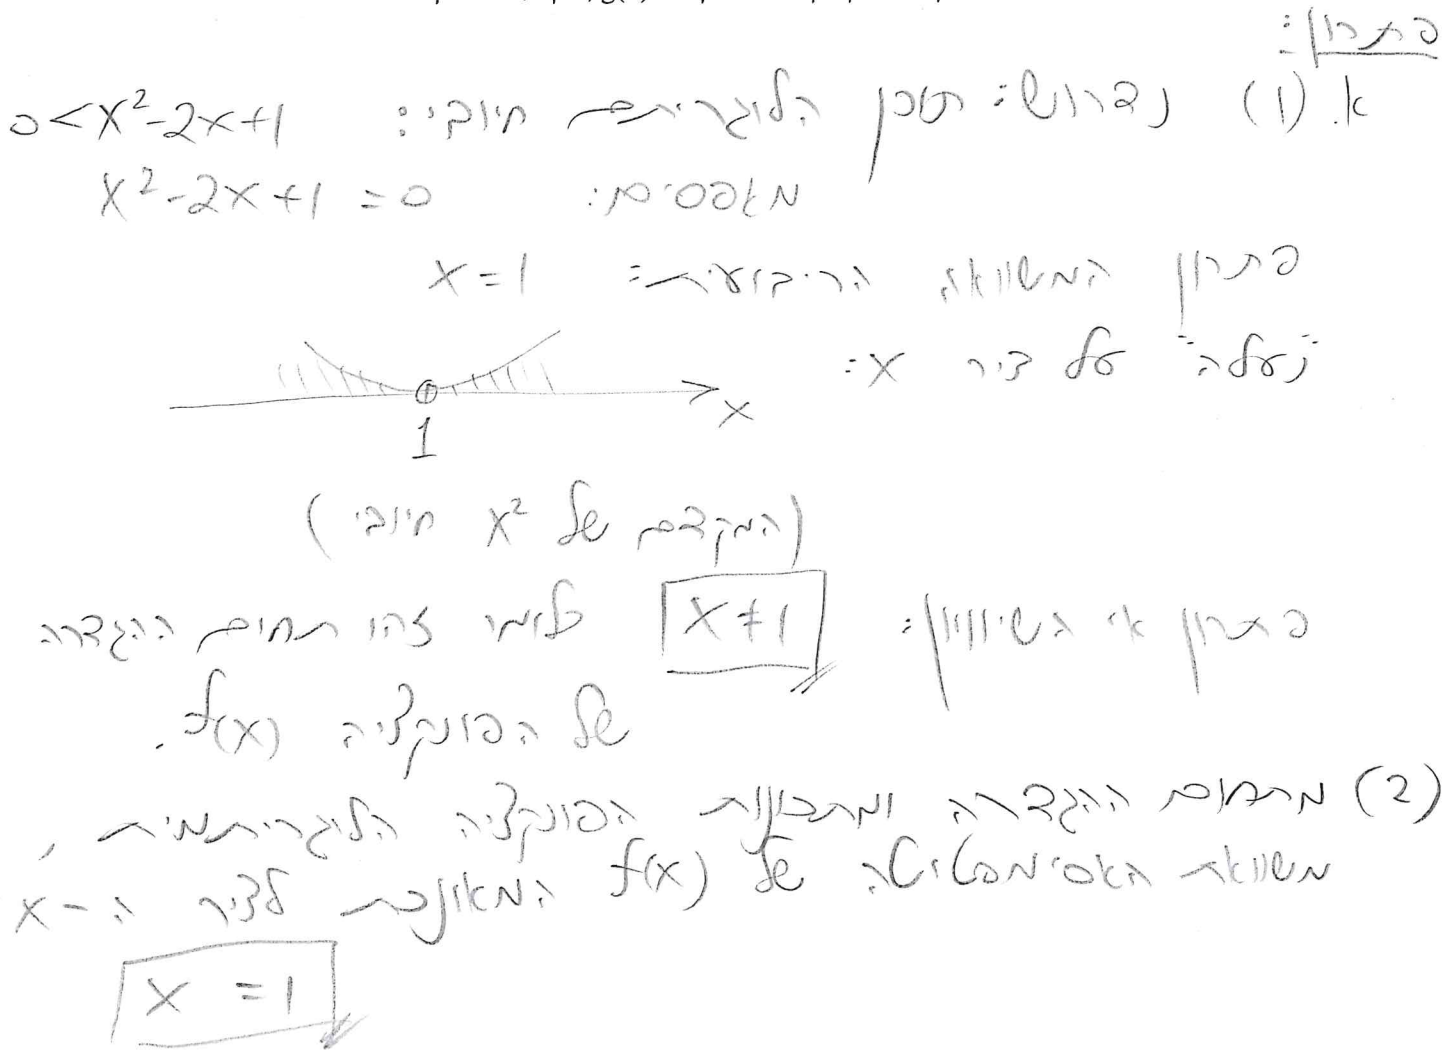 פתרון:
א. (1) נדרוש: תוכן הלוגריתם חיובי: 0<x²-2x+1
מאפסים: x²-2x+1=0
פתרון המשוואה הריבועית: x=1
"נעלה" על ציר x:
x
1
(המקדם של x² חיובי)
פתרון אי השיוויון: x≠1 כלומר זהו תחום ההגדרה
של הפונקציה f(x).
(2) מתחום ההגדרה ומתכונות הפונקציה הלוגריתמית,
משוואת האסימפטוטה של f(x) המאונכת לציר ה-x
x=1